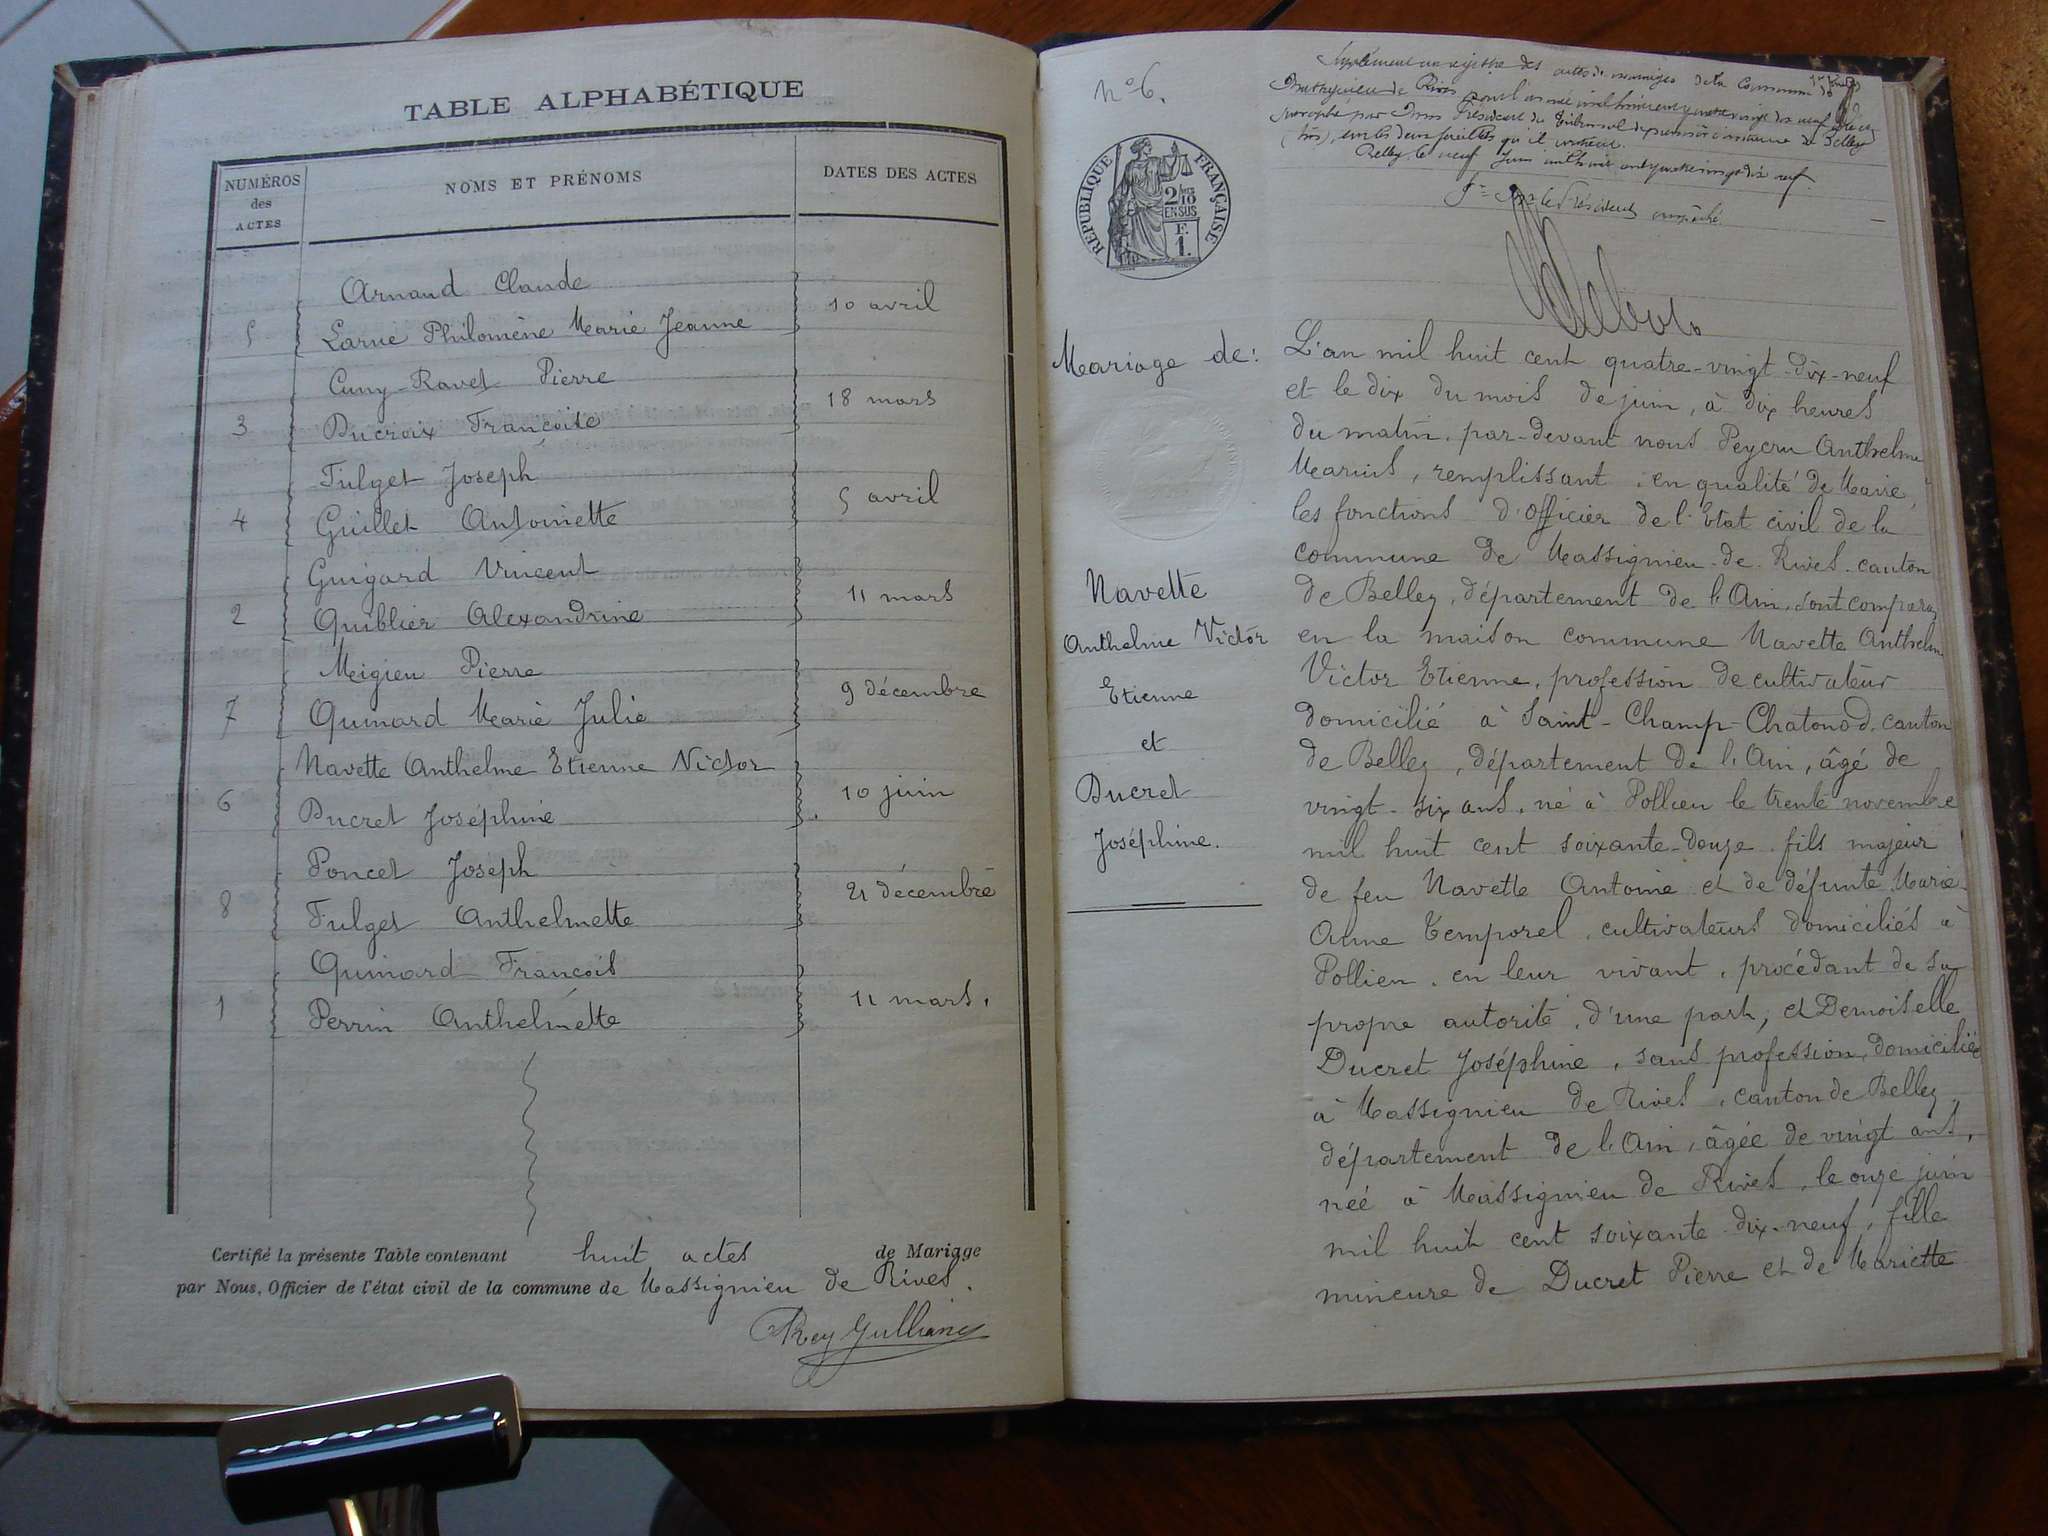 TABLE ALPHABÉTIQUE
NUMÉROS
des
ACTES
NOMS ET PRÉNOMS
DATES DES ACTES
Arnaud Claude
5 Larue Philomène Marie Jeanne 10 avril
Cuny-Ravet Pierre
3 Ducroix Françoise 18 mars
Fulget Joseph
4 Guillet Antoinette 5 avril
Guigard Vincent
2 Quiblier Alexandrine 11 mars
Migieu Pierre
7 Quinard Marie Julie 9 décembre
Navette Anthelme Etienne Victor
6 Ducret Joséphine 10 juin
Poncet Joseph
8 Fulget Anthelmette 21 décembre
Quinard François
1 Perrin Anthelmette 11 mars.
Certifié la présente Table contenant huit actes de Mariage
par Nous, Officier de l'état civil de la commune de Massignieu de Rives.
Rey Gulliany
n° 6.
Supplément au registre des actes de mariages de la Commune de
Massignieu de Rives pour l'année mil huit cent quatre vingt dix neuf
paraphé par Nous Président du Tribunal de première instance de Belley
sur les deux feuillets qu'il contient.
Belley, le neuf Juin mil huit cent quatre vingt dix neuf.
Pr le Président empêché
RÉPUBLIQUE FRANÇAISE
2/10
EN SUS
F.
1.
Mariage de:
Navette
Anthelme Victor
Etienne
et
Ducret
Joséphine.
L'an mil huit cent quatre-vingt-dix-neuf
et le dix du mois de juin, à dix heures
du matin, par-devant nous Peycru Anthelme
Marius, remplissant, en qualité de Maire,
les fonctions d'Officier de l'Etat civil de la
commune de Massignieu-de-Rives, canton
de Belley, département de l'Ain, sont comparus
en la maison commune Navette Anthelm
Victor Etienne, profession de cultivateur
domicilié à Saint-Champ-Chatonod, canton
de Belley, département de l'Ain, âgé de
vingt-six ans, né à Pollieu le trente novembre
mil huit cent soixante-douze, fils majeur
de feu Navette Antoine et de défunte Marie
Anne Temporel, cultivateurs domiciliés à
Pollieu, en leur vivant, procédant de sa
propre autorité, d'une part, et Demoiselle
Ducret Joséphine, sans profession, domiciliée
à Massignieu de Rives, canton de Belley,
département de l'Ain, âgée de vingt ans,
née à Massignieu de Rives, le onze juin
mil huit cent soixante-dix-neuf, fille
mineure de Ducret Pierre et de Mariette